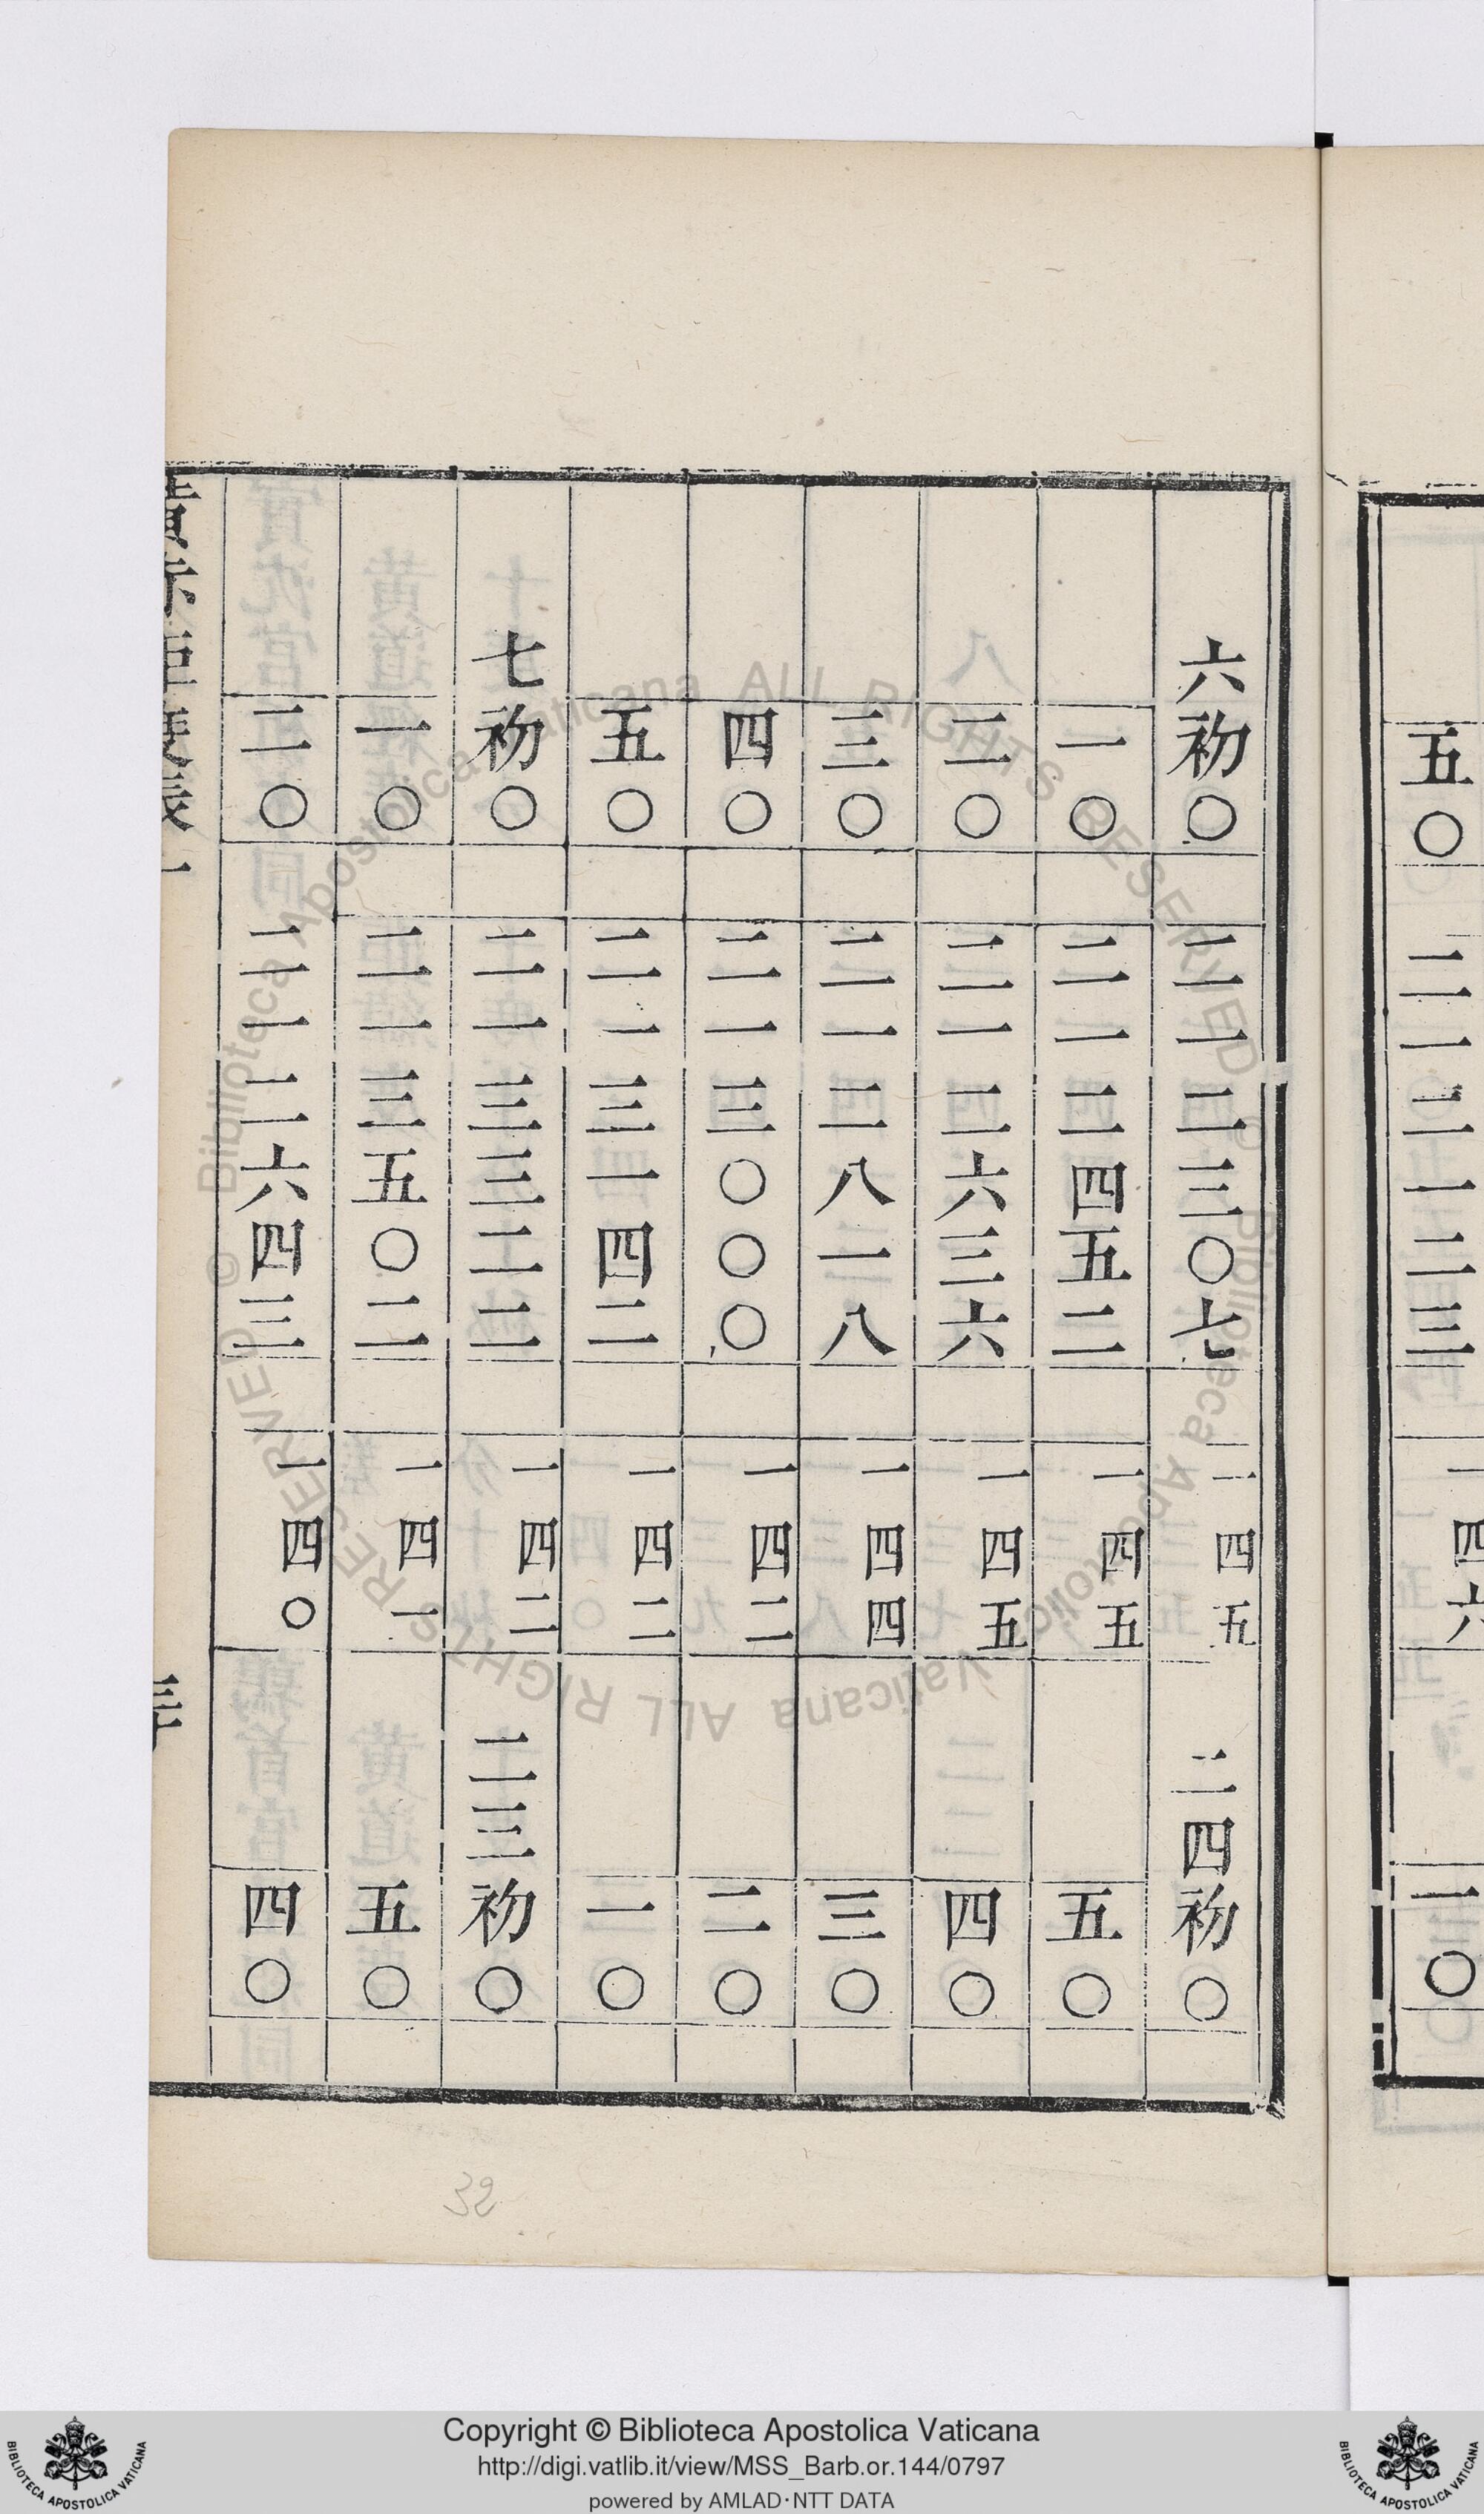 五〇 二一二一二三 一四六 一〇
六初〇 二一二三〇七 一四五 二四初〇
一〇 二一二四五二 一四五 五〇
二〇 二一二六三六 一四五 四〇
三〇 二一二八一八 一四四 三〇
四〇 二一三〇〇〇 一四二 二〇
五〇 二一三一四二 一四二 一〇
七初〇 二一三三二二 一四二 二三初〇
一〇 二一三五〇二 一四一 五〇
二〇 二一二六四三 一四〇 四〇
32
© Biblioteca Apostolica Vaticana ALL RIGHTS RESERVED
© Biblioteca Apostolica Vaticana ALL RIGHTS RESERVED
Copyright © Biblioteca Apostolica Vaticana
http://digi.vatlib.it/view/MSS_Barb.or.144/0797
powered by AMLAD·NTT DATA
BIBLIOTECA APOSTOLICA VATICANA
BIBLIOTECA APOSTOLICA VATICANA